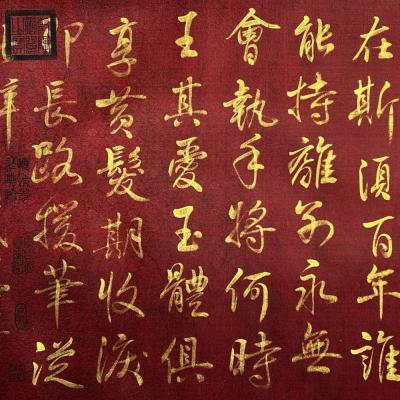 在斯須百年誰
能持離別永無
會執手將何時
王其愛玉體俱
享黃髮期收淚
即長路援筆從